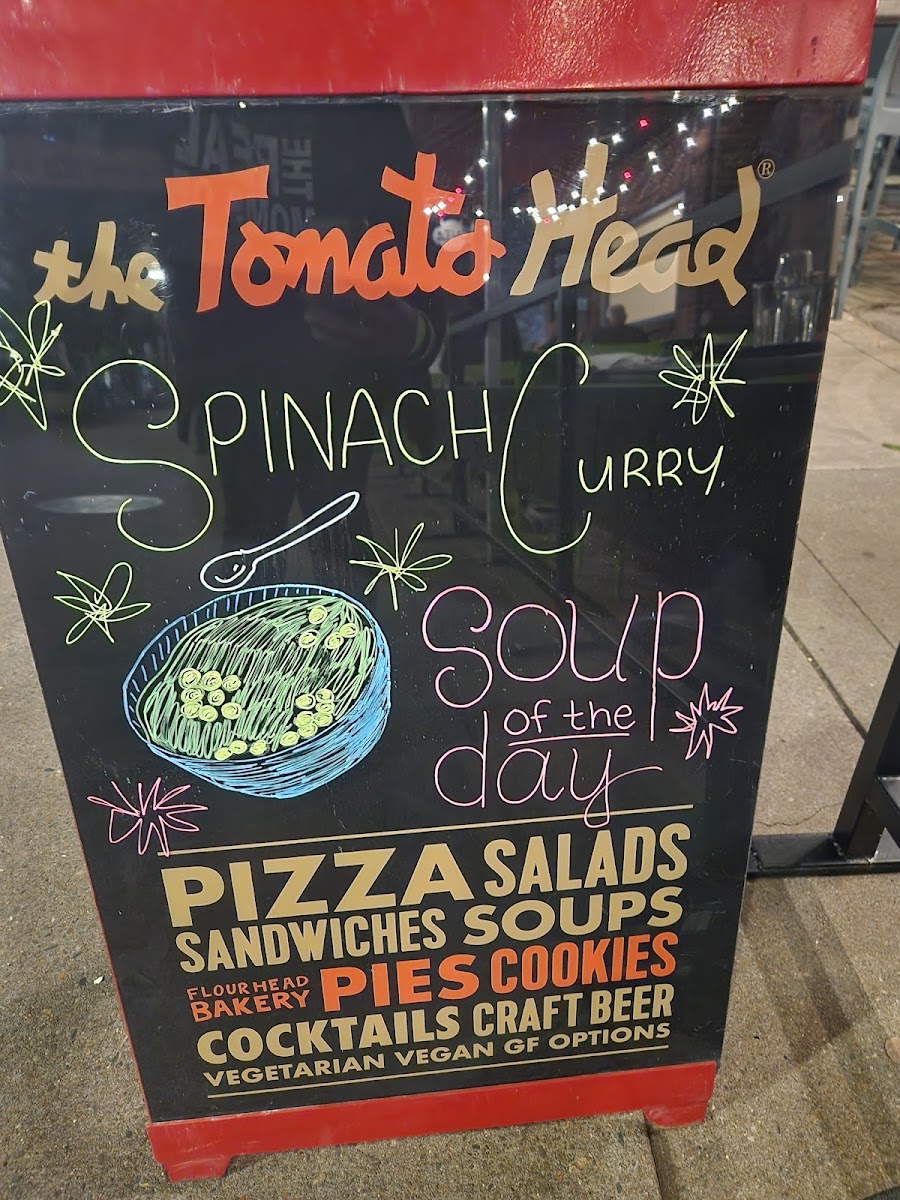 the Tomato Head®
SPINACH CURRY
soup
of the
day
PIZZA SALADS
SANDWICHES SOUPS
FLOURHEAD BAKERY PIES COOKIES
COCKTAILS CRAFT BEER
VEGETARIAN VEGAN GF OPTIONS